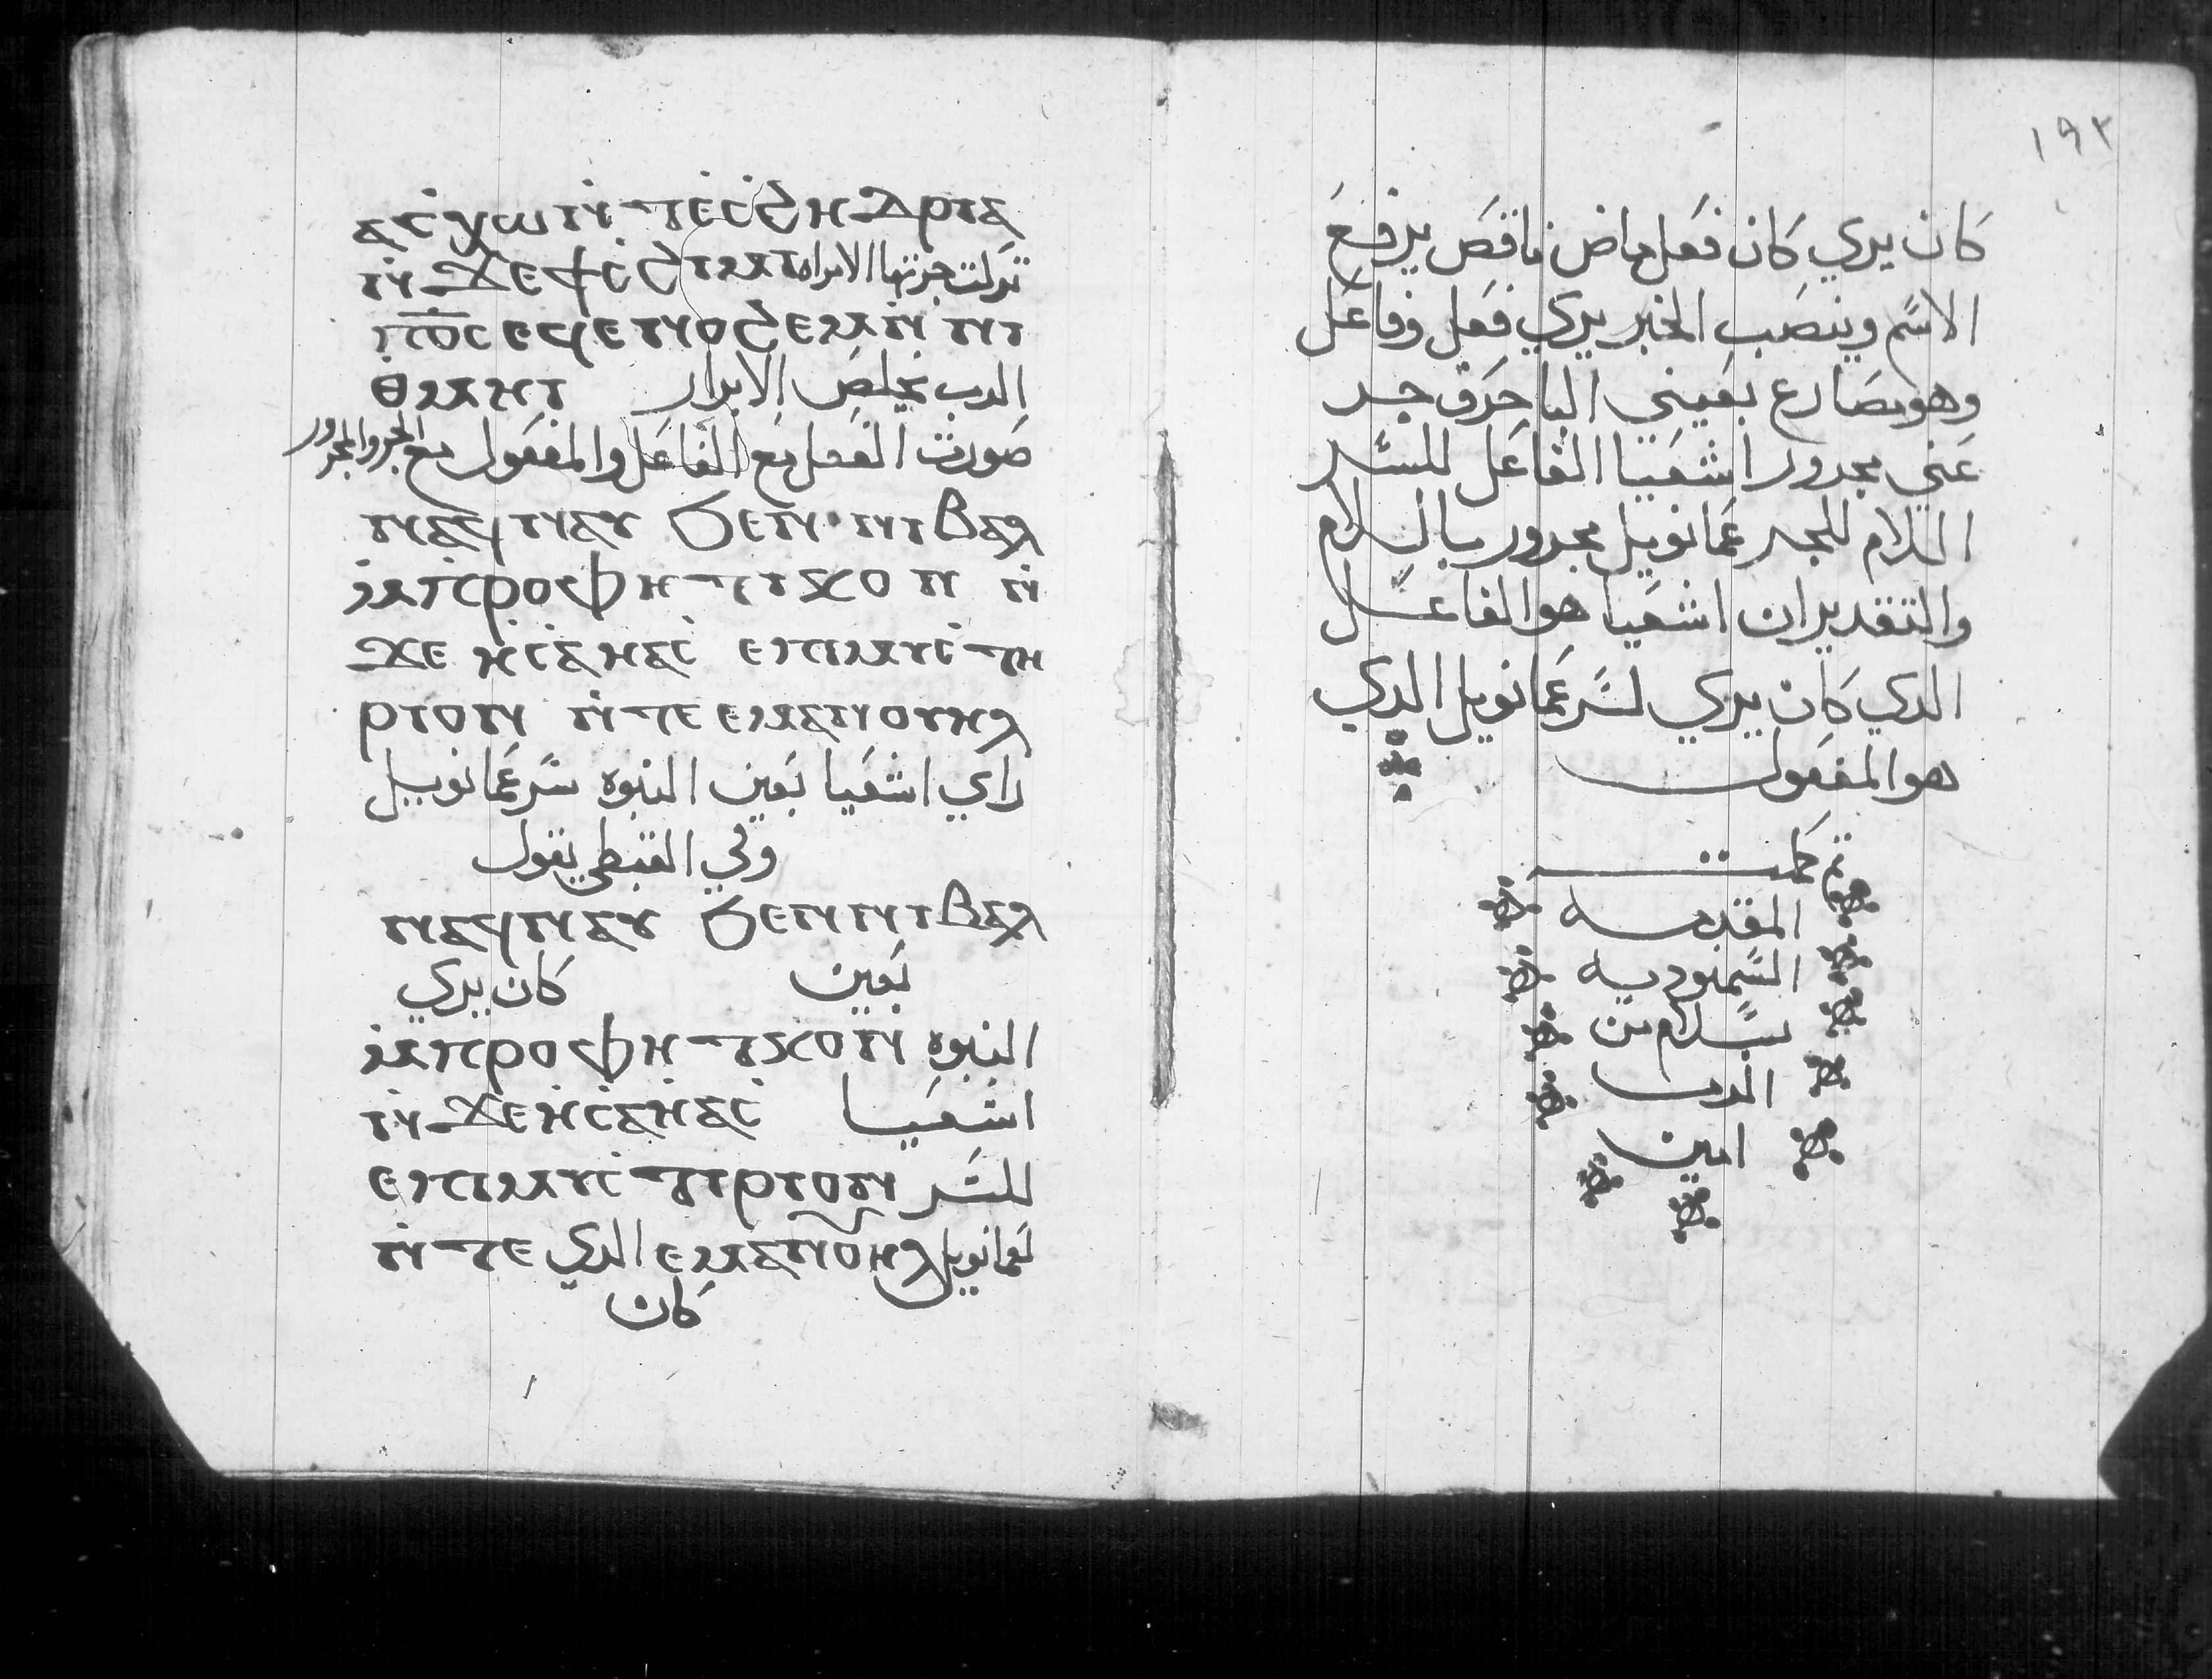 ⲁⲥⲭⲱ ⲛ̇ⲧⲉⲥϩⲏⲇⲣⲓⲁ
ⲛ̇ϫⲉϯⲥϩⲓⲙⲓ تركت جرتها الامراه
ⲡ̅ⲟ̅ⲥ ⲉϥⲉⲛⲟϩⲉⲙ ⲛ̇ⲛⲓ
ⲑⲙⲏⲓ الرب يخلص الابرار
صورت الفعل مع الفاعل والمفعول مع الجر والمجرور
ⲛⲁϥⲛⲁⲩ ϧⲉⲛ ⲛⲓⲃⲁⲗ
ⲙ̇ⲡⲣⲟⲫⲏⲧⲓⲕⲟⲛ ⲛ̇
ϫⲉ ⲏⲥⲁⲏⲁⲥ ⲉⲡⲓⲙⲩⲥⲧⲏ
ⲣⲓⲟⲛ ⲛ̇ⲧⲉ ⲉⲙⲁⲛⲟⲩⲏⲗ
راي اشعيا بعين النبوه سر عمانوييل
وفي القبطي يقول
ⲛⲁϥⲛⲁⲩ ϧⲉⲛ ⲛⲓⲃⲁⲗ
كان يري بعين
ⲙ̇ⲡⲣⲟⲫⲏⲧⲓⲕⲟⲛ النبوه
ⲛ̇ϫⲉ ⲏⲥⲁⲏⲁⲥ اشعيا
ⲉⲡⲓⲙⲩⲥⲧⲓⲣⲓⲟⲛ للسر
ⲛ̇ⲧⲉ الدي ⲉⲙⲁⲛⲟⲏⲗ لعمانوييل
كان
١٩٢
كان يري كان فعل ماض ناقص يرفع
الاسم وينصب الخبر يري فعل وفاعل
وهو مضارع بعيني البا حرف جر
عني مجرور اشعيا الفاعل للسر
اللام للجر عمانوييل مجرور باللام
والتقدير ان اشعيا هو الفاعل
الدي كان يري لسر عمانوييل الدي
هو المفعول
تم كملت
المقدمه
السمنوديه
بسلام من
الرب
امين